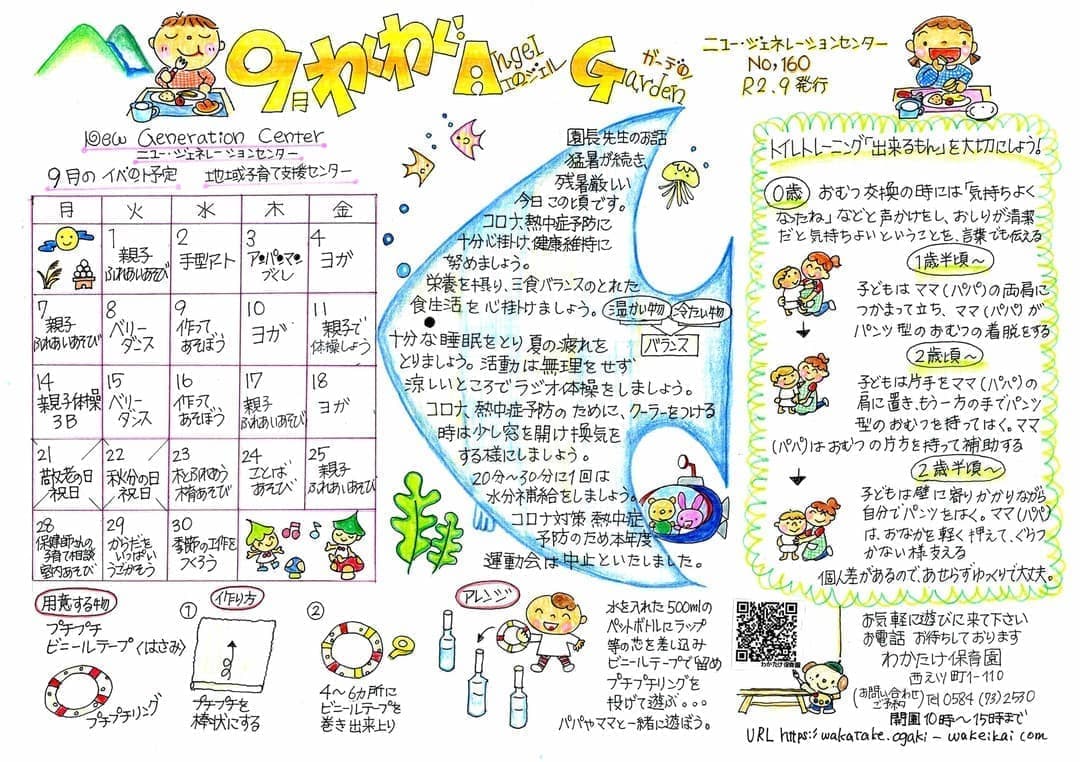 9月わくわく Angel Garden
エのジェル
ガーデの
ニュー・ジェネレーションセンター
No,160
R2.9発行
New Generation Center
ニュー・ジェネレーションセンター
9月のイベの卜予定 地域子育て支援センター
月 火 水 木 金
1 親子ふれあいあそび
2 手型アート
3 ア・パ・マ・づくし
4 ヨガ
7 親子ふれあいあそび
8 ベリーダンス
9 作ってあそぼう
10 ヨガ
11 親子で体操しよう
14 親子体操3B
15 ベリーダンス
16 作ってあそぼう
17 親子ふれあいあそび
18 ヨガ
21 敬老の日 祝日
22 秋分の日 祝日
23 木とふれあう木育あそび
24 ことばあそび
25 親子ふれあいあそび
28 保健師さんの子育て相談 室内あそび
29 からだをいっぱいうごかそう
30 季節の工作をつくろう
園長先生のお話
猛暑が続き、
残暑厳しい
今日この頃です。
コロナ、熱中症予防に
十分心掛け、健康維持に
努めましょう。
栄養を摂り、三食バランスのとれた
食生活を心掛けましょう。
温かい物 冷たい物
バランス
十分な睡眠をとり夏の疲れを
とりましょう。活動は無理をせず
涼しいところでラジオ体操をしましょう。
コロナ、熱中症予防のために、クーラーをつける
時は少し窓を開け換気を
する様にしましょう。
20分〜30分に1回は
水分補給をしましょう。
コロナ対策 熱中症
予防のため本年度
運動会は中止といたしました。
トイレトレーニング「出来るもん」を大切にしよう!
0歳 おむつ交換の時には「気持ちよく
なったね」などと声かけをし、おしりが清潔
だと気持ちよいということを、言葉でも伝える
1歳半頃〜
子どもはママ(パパ)の両肩に
つかまって立ち、ママ(パパ)が
パンツ型のおむつの着脱をする
2歳頃〜
子どもは片手をママ(パパ)の
肩に置き、もう一方の手でパンツ
型のおむつを持ってはく。ママ
(パパ)はおむつの片方を持って補助する
2歳半頃〜
子どもは壁に寄りかかりながら
自分でパンツをはく。ママ(パパ)
は、おなかを軽く押えて、ぐらつ
かない様支える
個人差があるので、あせらずゆっくりで大丈夫。
用意する物
プチプチ
ビニールテープ(はさみ)
プチプチリング
作り方
①
プチプチを
棒状にする
②
4〜6カ所に
ビニールテープを
巻き出来上り
アレンジ
水を入れた500mlの
ペットボトルにラップ
等の芯を差し込み
ビニールテープで留め
プチプチリングを
投げて遊ぶ。。。
パパやママと一緒に遊ぼう。
わかたけ保育園
お気軽に遊びに来て下さい
お電話 お待ちしております
わかたけ保育園
西之川町1-110
(お問い合わせ ご予約) Tel 0584 (73) 2530
開園10時〜15時まで
URL https://wakatake.ogaki-wakeikai.com